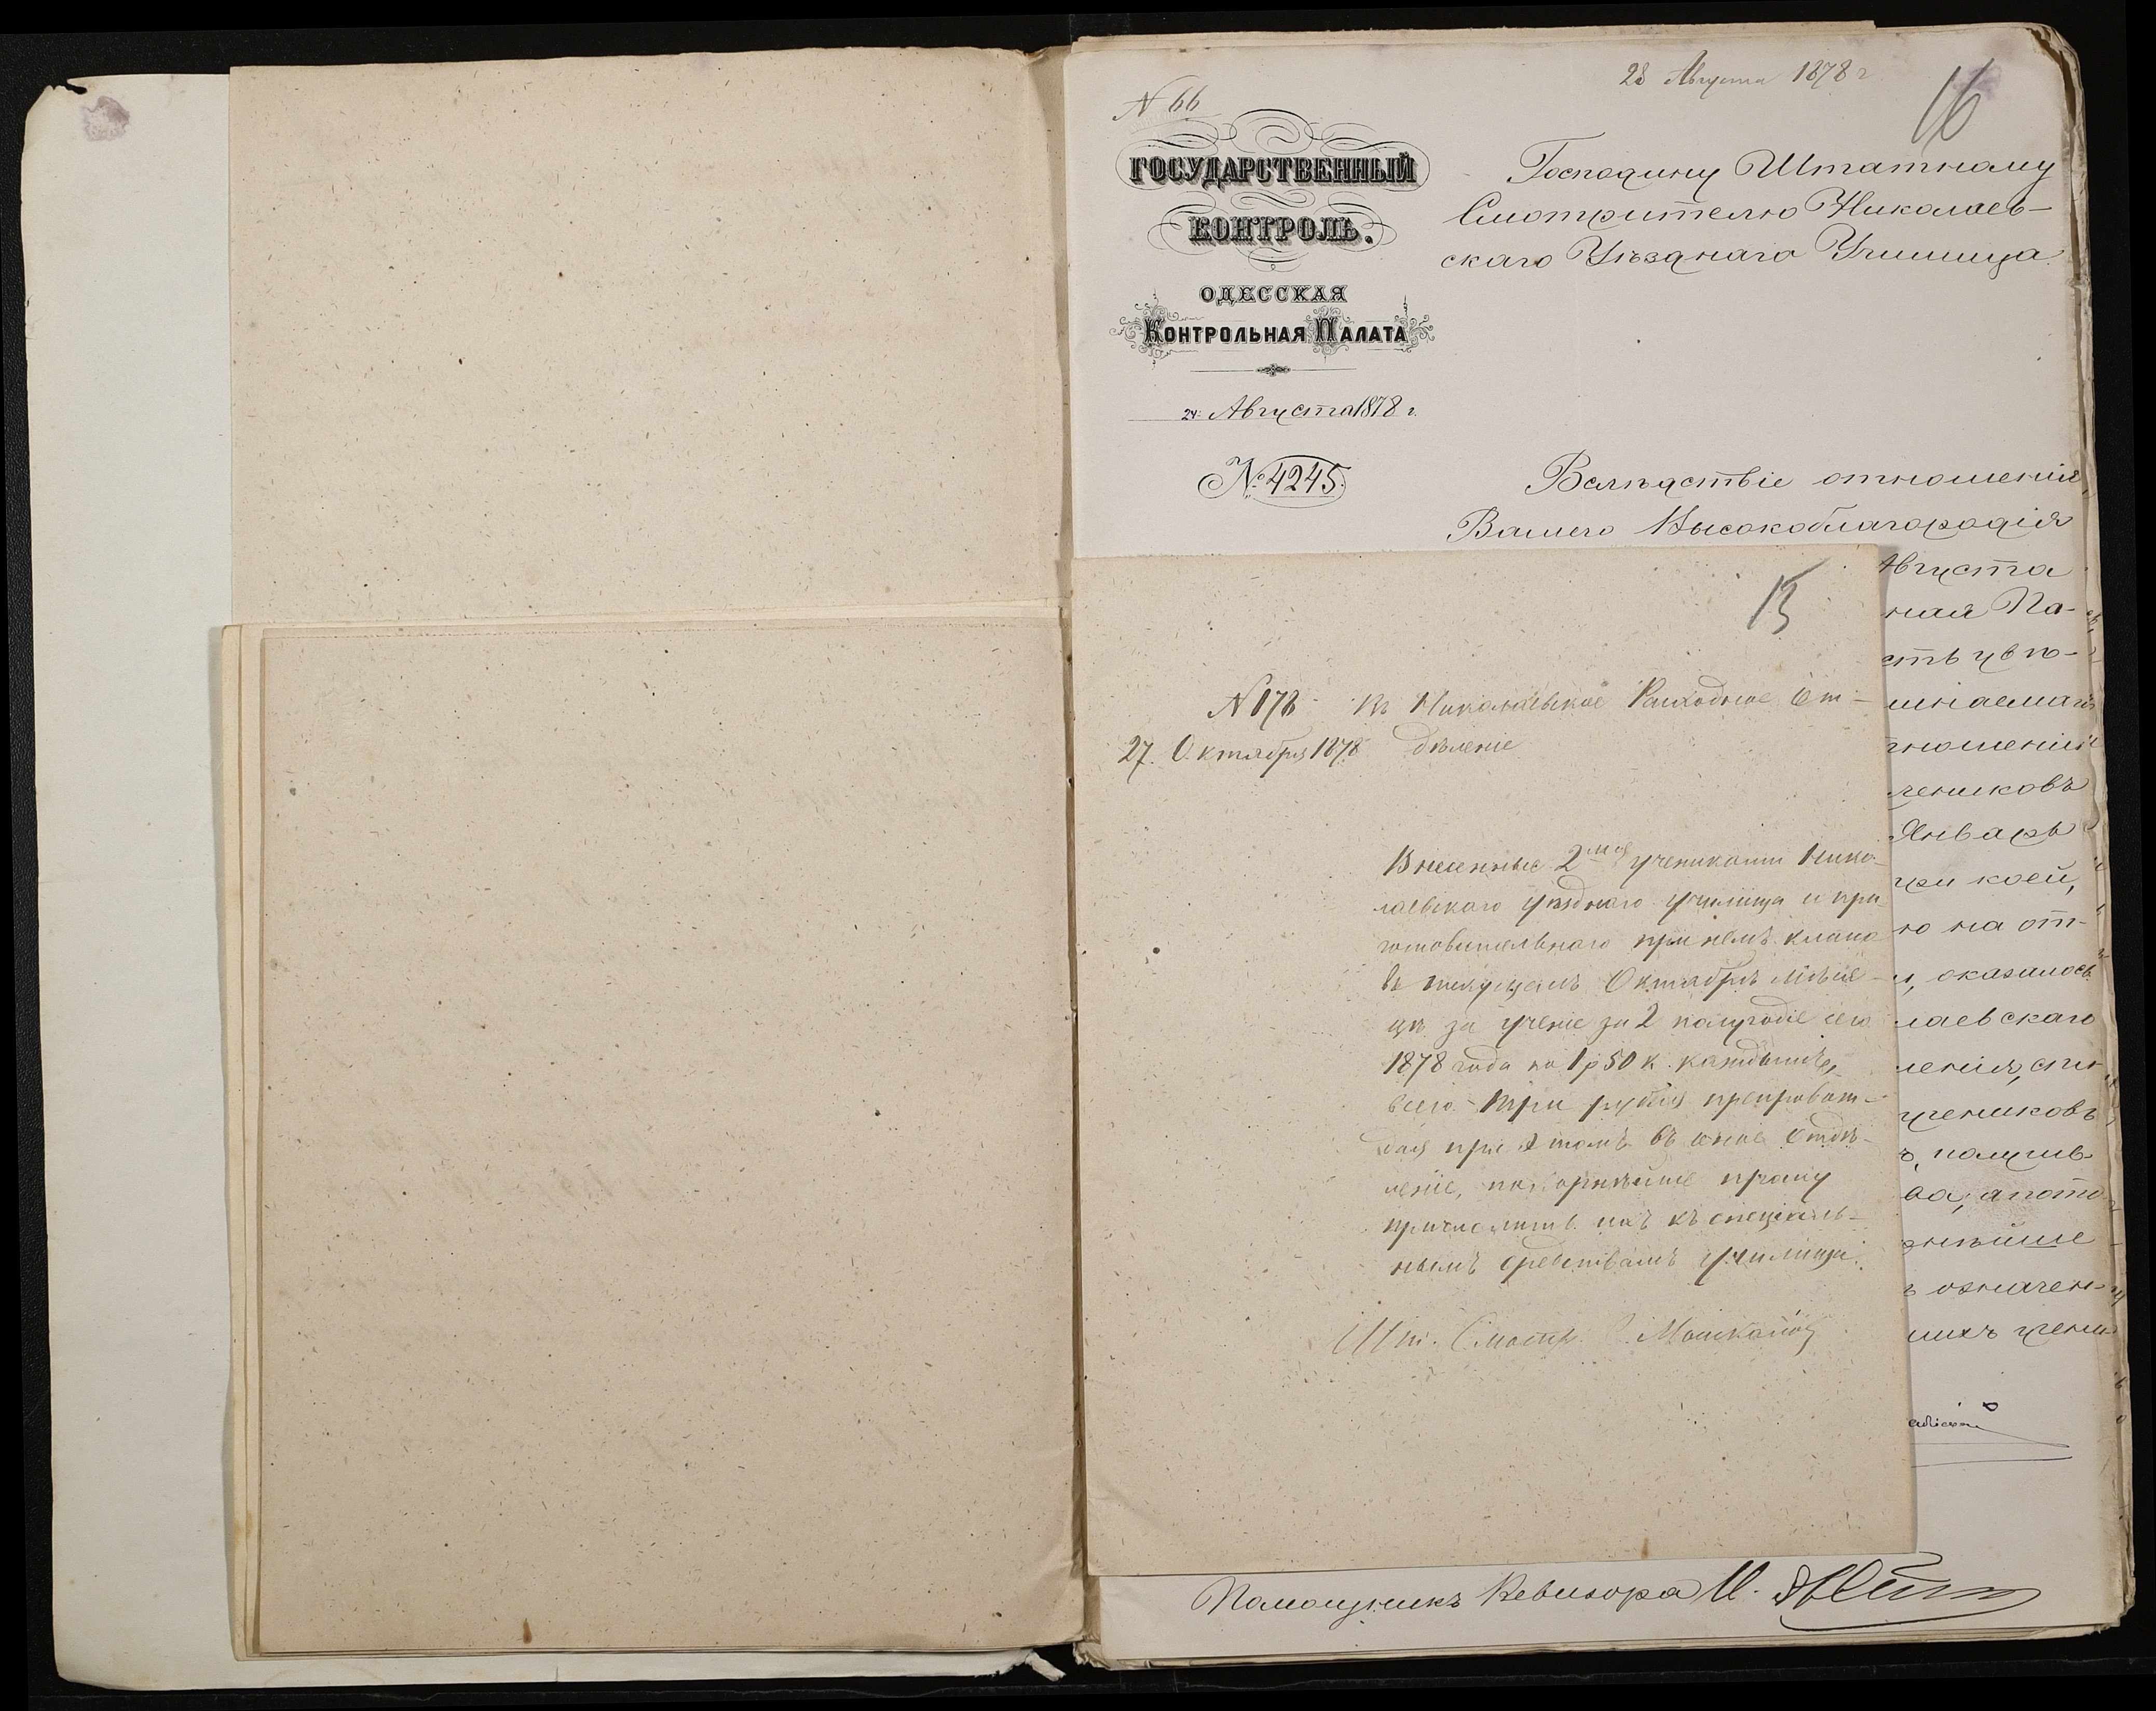 28 Августа 1878 г
N 66
16
ГОСУДАРСТВЕННЫЙ
КОНТРОЛЬ.
ОДЕССКАЯ
КОНТРОЛЬНАЯ ПАЛАТА
24 Августа 1878 г.
№ 4245.
Господину Штатному
Смотрителю Николаев-
скаго Уѣзднаго Училища.
Вслѣдствіе отношенія
Вашего Высокоблагородія
Августа
ная Па-
сть увѣ-
шнаемая
тношенія
чениковъ
Январь
при коей,
ю на от-
и, оказалось
лаевскаго
ленія, спи
учениковъ
ъ, получив-
ва, а пото
рнѣйше
ъ означен-
шихъ учени
Помощникъ Ревизора И.
15
N 178
27. Октября 1878
Въ Николаевское Расходное От-
дѣленіе
Внесенные 2мя учениками Нико-
лаевскаго уѣзднаго училища и при-
готовительнаго при немъ класса
въ текущемъ Октябрѣ мѣся-
цѣ за ученіе за 2 полугодіе сего
1878 года по 1 р 50 к. каждымъ,
всего три рубля препровож-
дая при этомъ въ оное Отдѣ-
леніе, покорнѣйше прошу
причислить ихъ къ спеціаль-
нымъ средствамъ училища.
Шт. Смотр.